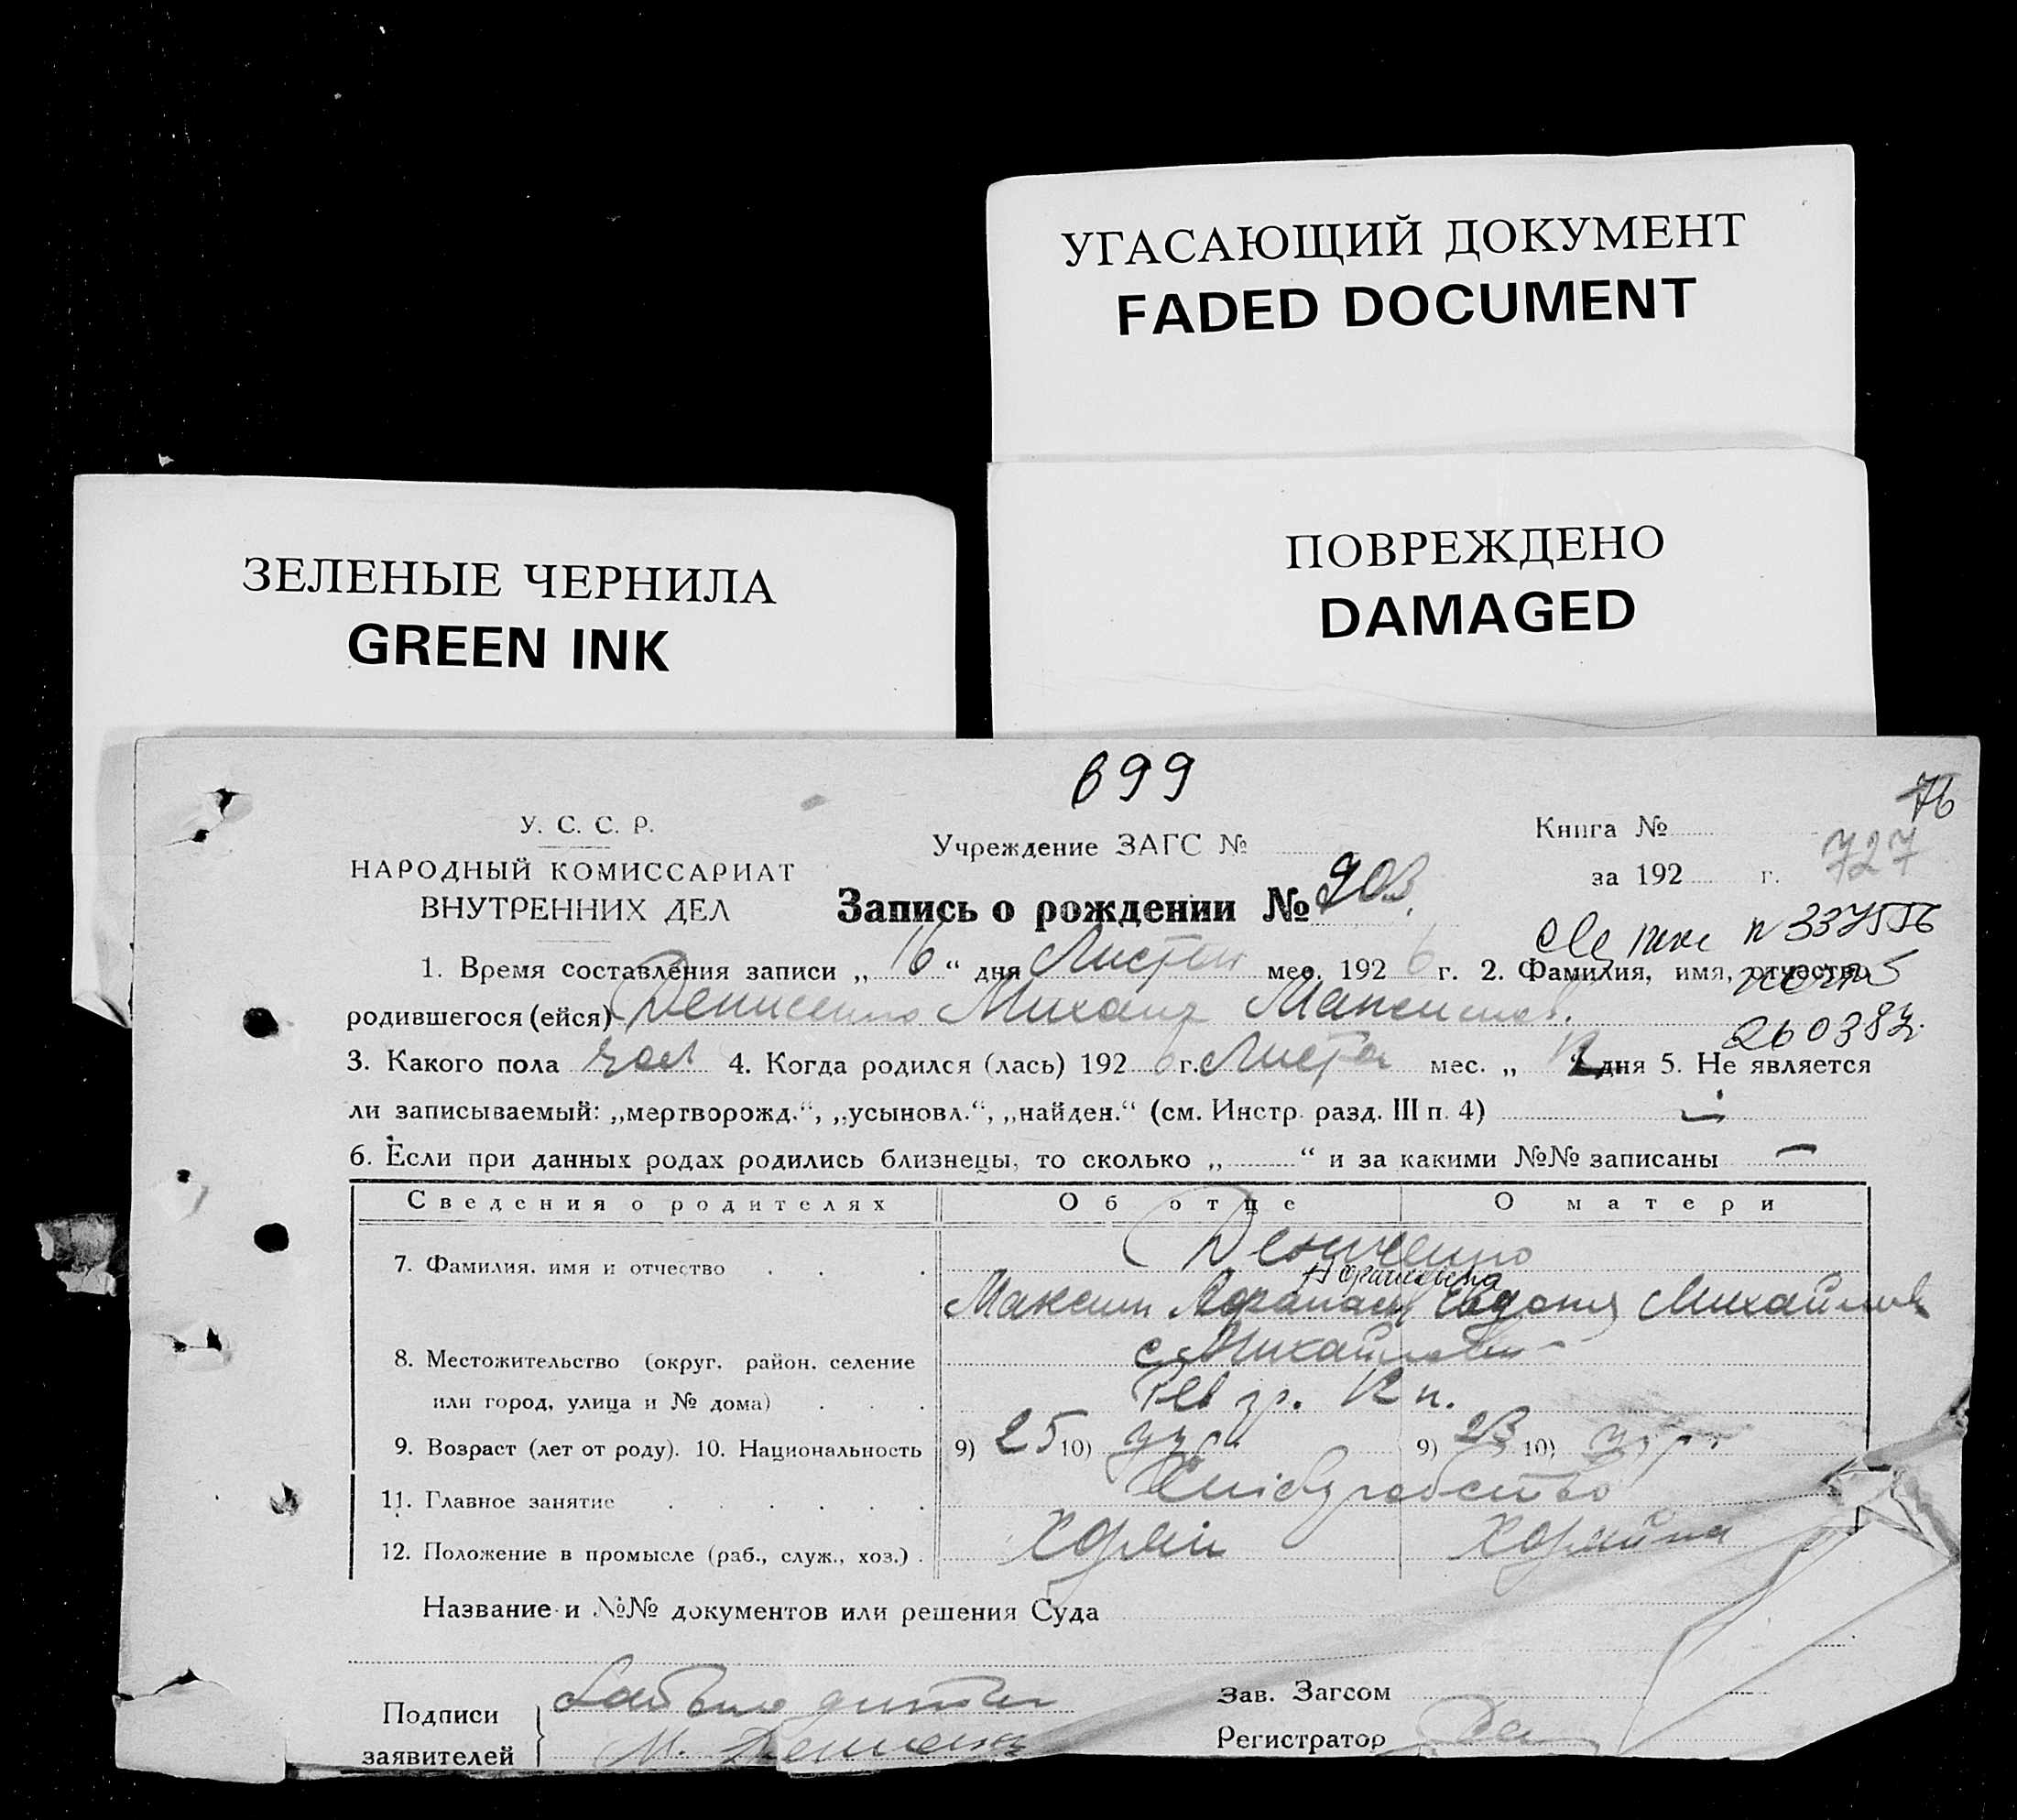 УГАСАЮЩИЙ ДОКУМЕНТ
FADED DOCUMENT
ЗЕЛЕНЫЕ ЧЕРНИЛА
GREEN INK
ПОВРЕЖДЕНО
DAMAGED
699
76
У. С. С. Р.
Учреждение ЗАГС №
Книга №
727
НАРОДНЫЙ КОМИССАРИАТ
за 192 г.
ВНУТРЕННИХ ДЕЛ
Запись о рождении № 903.
1. Время составления записи „ 16 “ дня Листоп мес. 192 6 г. 2. Фамилия, имя, отчество
родившегося (ейся) Денисенко Михаил Максимов.
3. Какого пола чол 4. Когда родился (лась) 192 6 г. Листоп мес. „ 12 “ дня 5. Не является
ли записываемый: „мертворожд.“, „усыновл.“, „найден.“ (см. Инстр. разд. III п. 4) —
6. Если при данных родах родились близнецы, то сколько „ “ и за какими №№ записаны —
Сведения о родителях Об отце О матери
Денисенко
7. Фамилия, имя и отчество
Максим Афанас Евдокия Михайлов
8. Местожительство (округ, район, селение с. Михайловки
или город, улица и № дома)
9. Возраст (лет от роду). 10. Национальность 9) 25 10) укр 9) 23 10) укр
11. Главное занятие
12. Положение в промысле (раб., служ., хоз.) Хозяин Хозяйка
Название и №№ документов или решения Суда
Подписи Батько дитини
заявителей М. Денисенко
Зав. Загсом
Регистратор